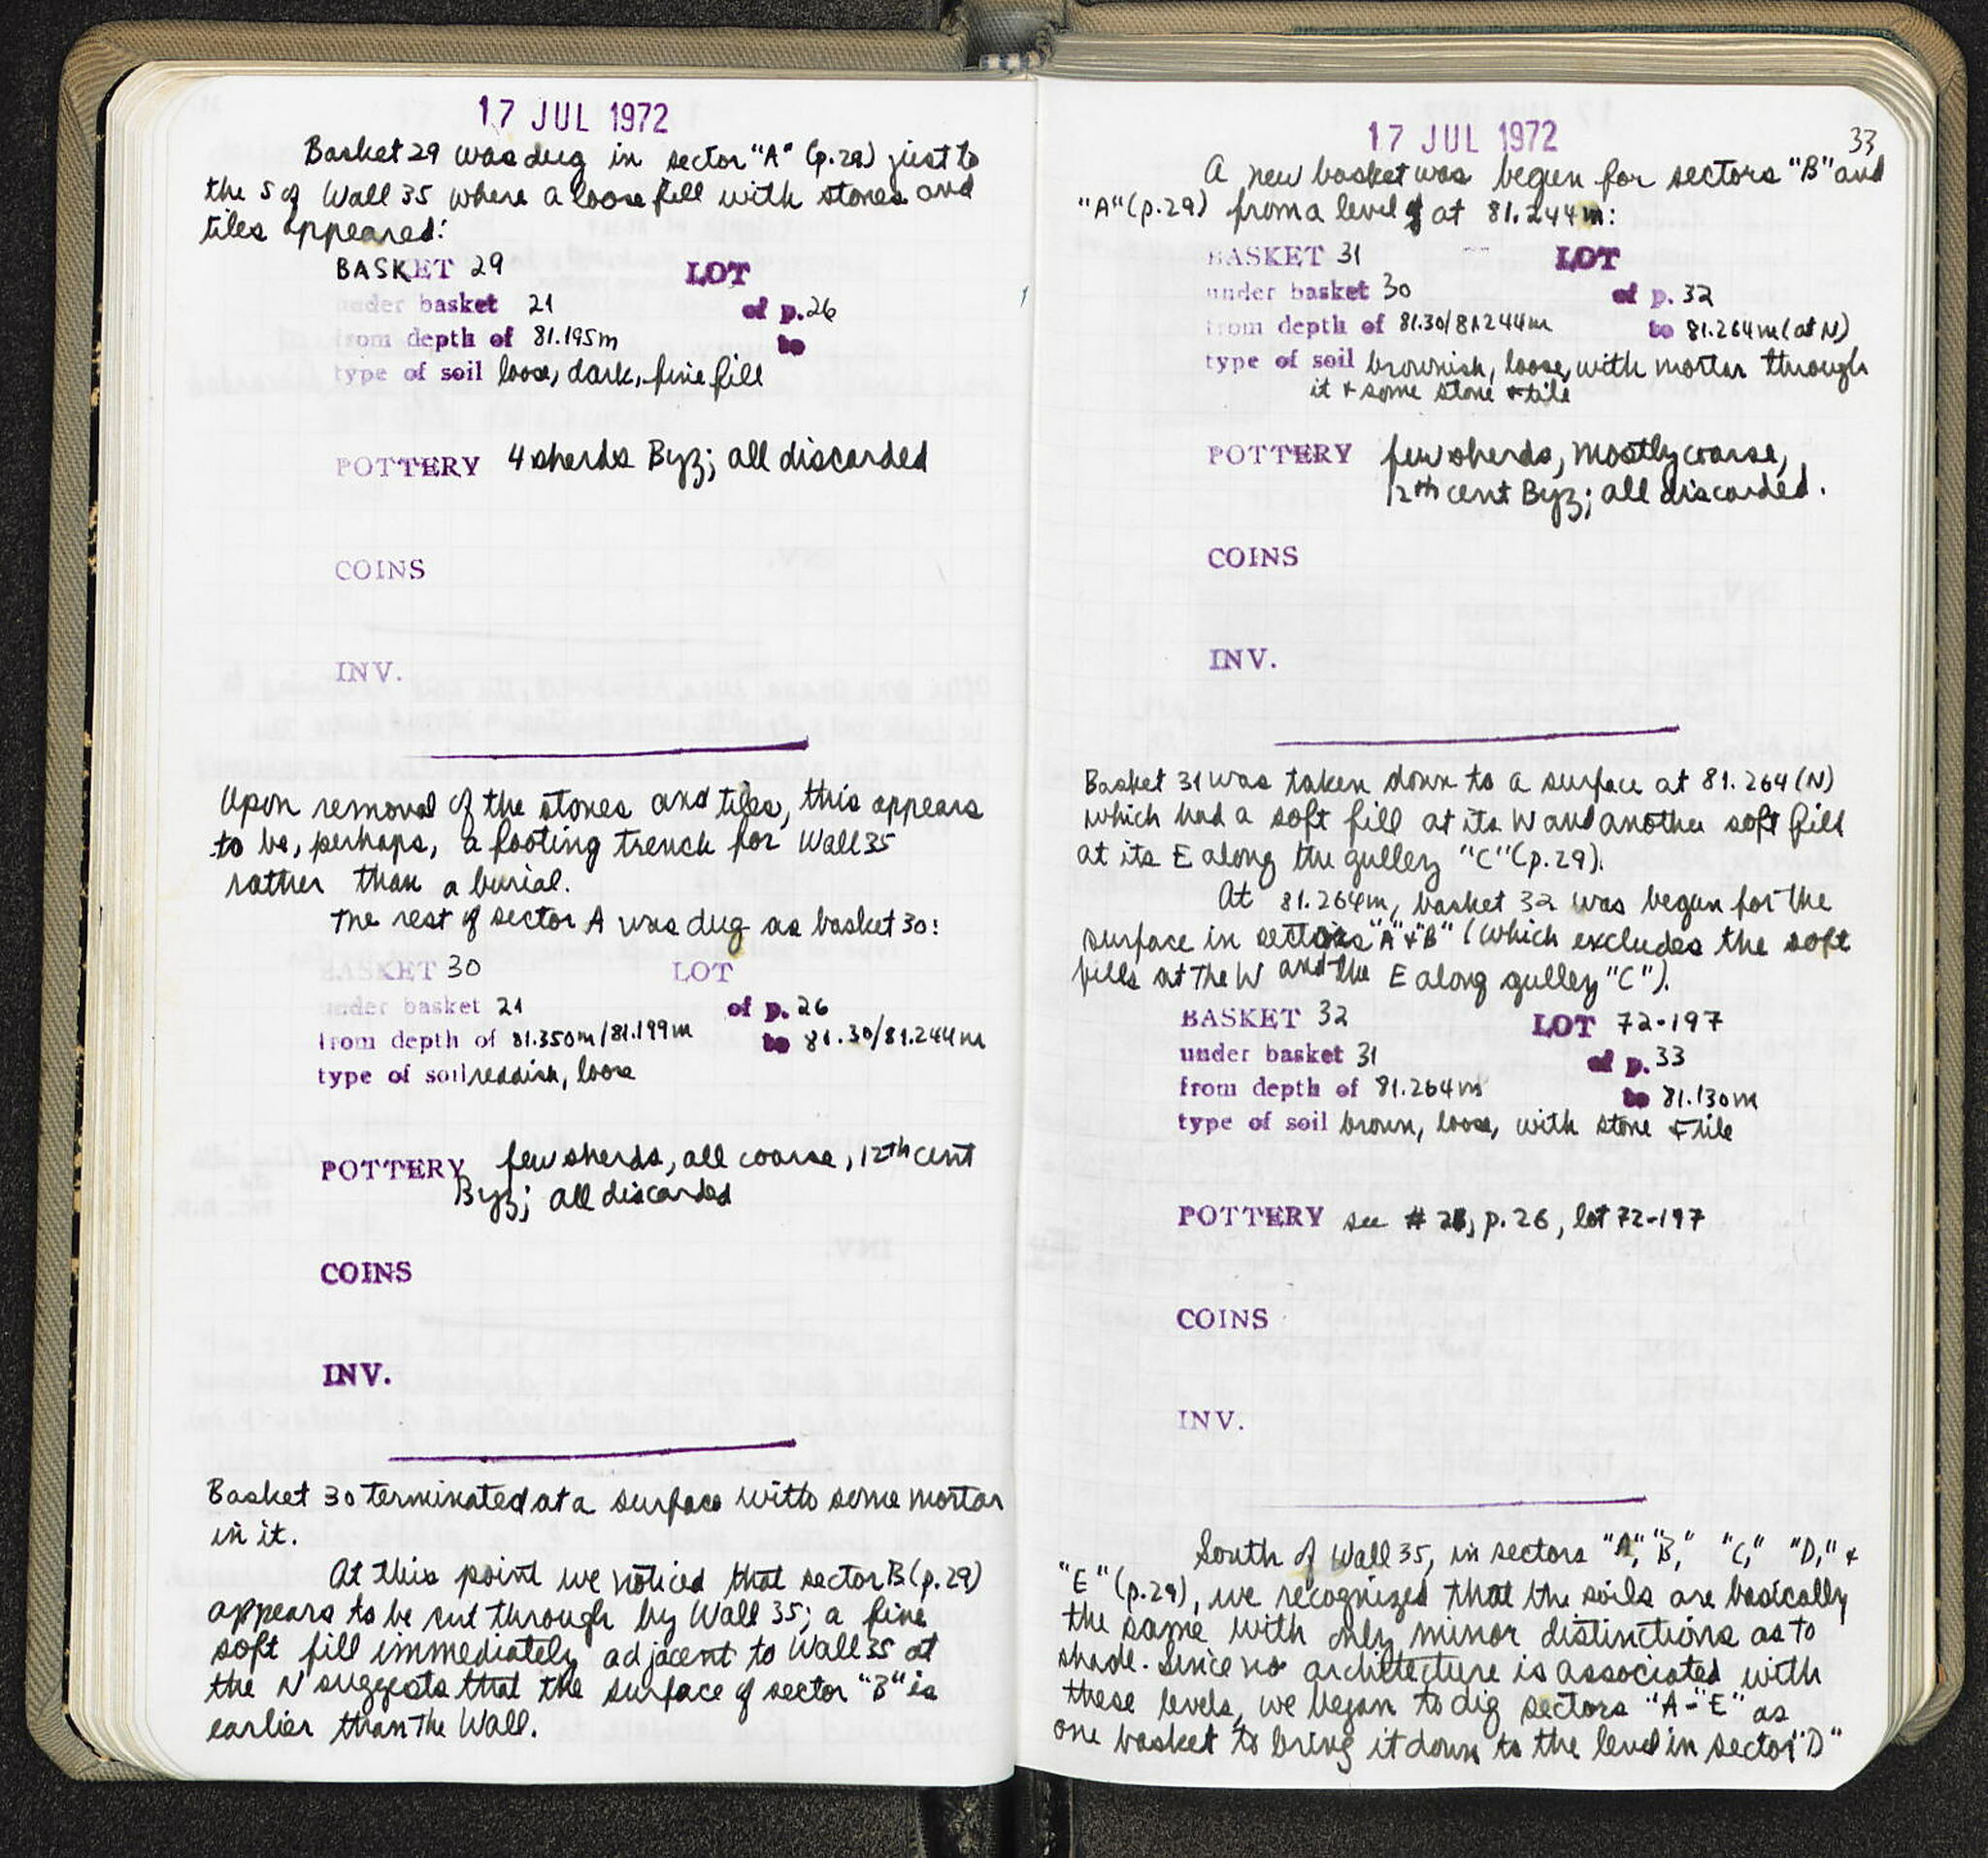 17 JUL 1972
Basket 29 was dug in sector "A" (p.29) just to
the S of Wall 35 where a loose fill with stones and
tiles appeared:
BASKET 29 LOT
under basket 21 of p.26
from depth of 81.195m to
type of soil loose, dark, fine fill
POTTERY 4 sherds Byz; all discarded
COINS
INV.
Upon removal of the stones and tiles, this appears
to be, perhaps, a footing trench for Wall 35
rather than a burial.
The rest of sector A was dug as basket 30:
BASKET 30 LOT
under basket 21 of p. 26
from depth of 81.350m/81.199m to 81.30/81.244m
type of soil reddish, loose
POTTERY few sherds, all coarse, 12th cent
Byz; all discarded
COINS
INV.
Basket 30 terminated at a surface with some mortar
in it.
At this point we noticed that sector B (p.29)
appears to be cut through by Wall 35; a fine
soft fill immediately adjacent to Wall 35 at
the N suggests that the surface of sector "B" is
earlier than the Wall.
17 JUL 1972 33
A new basket was begun for sectors "B" and
"A" (p.29) from a level at 81.244m:
BASKET 31 LOT
under basket 30 of p. 32
from depth of 81.30/81.244m to 81.264m (at N)
type of soil brownish, loose, with mortar through
it + some stone + tile
POTTERY few sherds, mostly coarse,
12th cent Byz; all discarded.
COINS
INV.
Basket 31 was taken down to a surface at 81.264 (N)
which had a soft fill at its W and another soft fill
at its E along the gulley "C" (p.29).
At 81.264m, basket 32 was begun for the
surface in sectors "A" + "B" (which excludes the soft
fills at the W and the E along gulley "C").
BASKET 32 LOT 72-197
under basket 31 of p. 33
from depth of 81.264m to 81.130m
type of soil brown, loose, with stone + tile
POTTERY see # , p.26, lot 72-197
COINS
INV.
South of Wall 35, in sectors "A", "B," "C," "D," +
"E" (p.29), we recognized that the soils are basically
the same with only minor distinctions as to
shade. Since no architecture is associated with
these levels, we began to dig sectors "A-"E" as
one basket to bring it down to the level in sector "D"